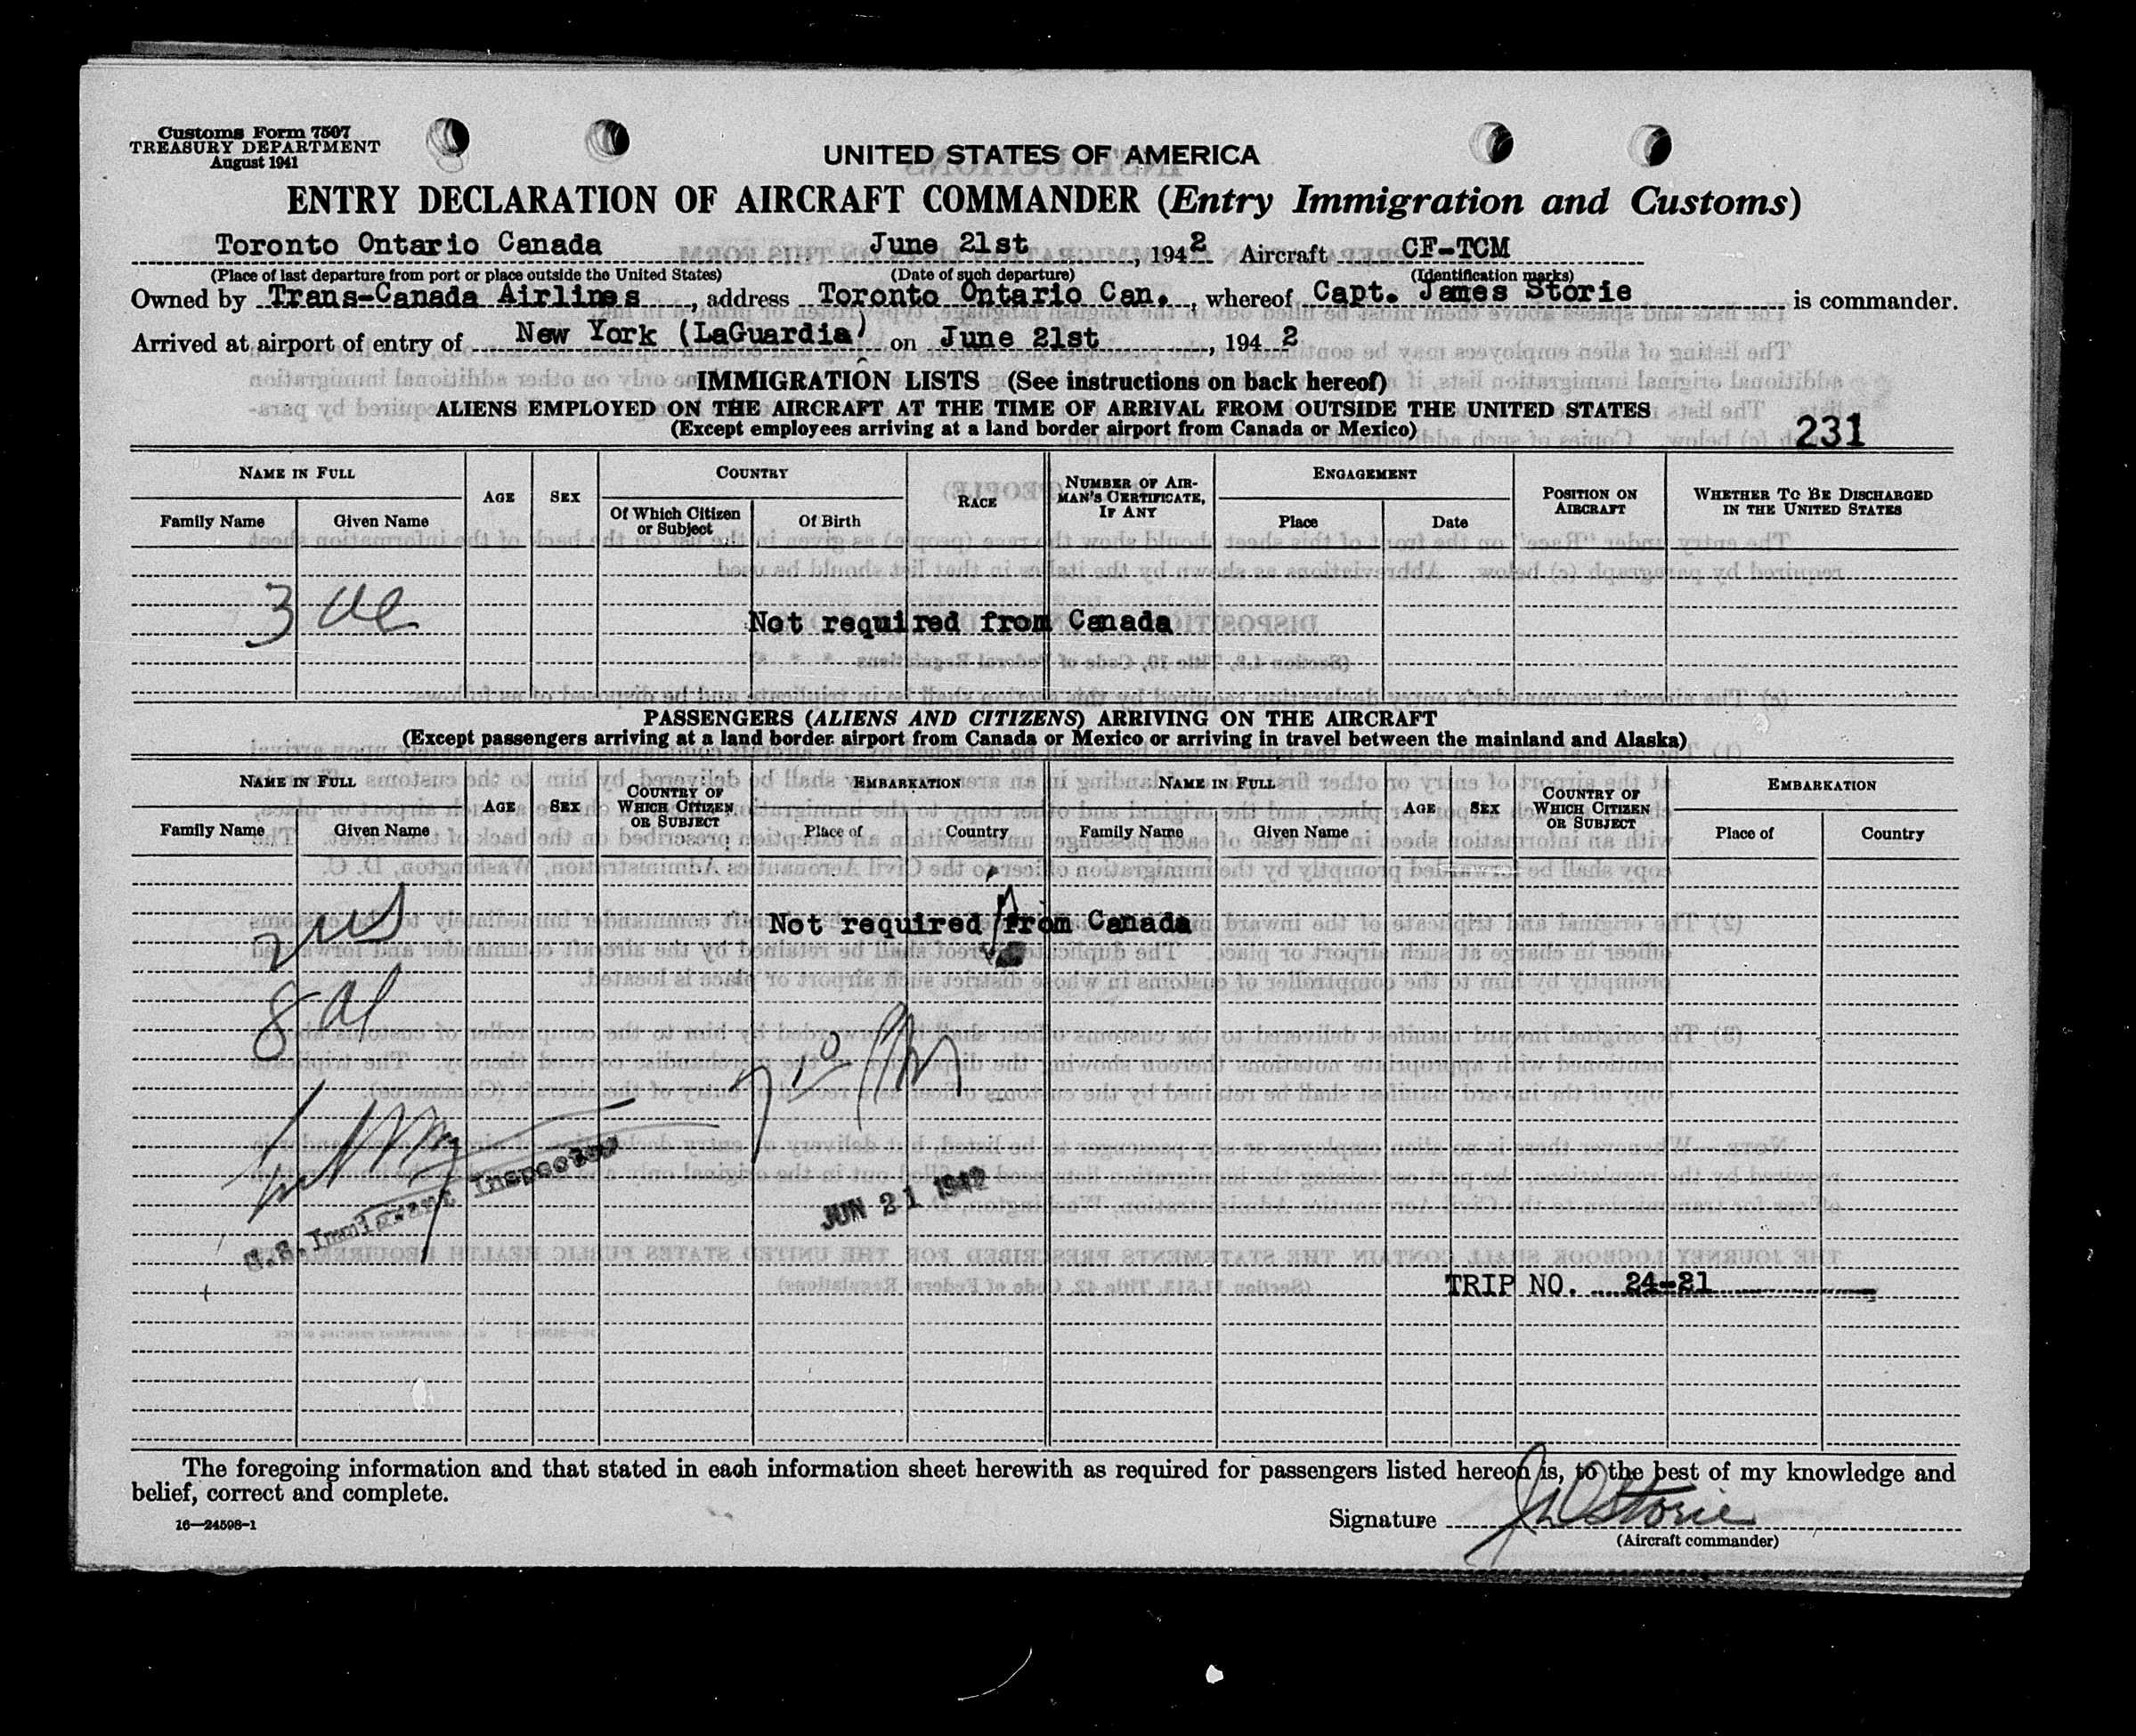 Customs Form 7507
TREASURY DEPARTMENT
August 1941
UNITED STATES OF AMERICA
ENTRY DECLARATION OF AIRCRAFT COMMANDER (Entry Immigration and Customs)
Toronto Ontario Canada June 21st, 1942 Aircraft CF-TCM
(Place of last departure from port or place outside the United States) (Date of such departure) (Identification marks)
Owned by Trans-Canada Airlines, address Toronto Ontario Can., whereof Capt. James Storie is commander.
Arrived at airport of entry of New York (LaGuardia) on June 21st, 1942
IMMIGRATION LISTS (See instructions on back hereof)
ALIENS EMPLOYED ON THE AIRCRAFT AT THE TIME OF ARRIVAL FROM OUTSIDE THE UNITED STATES
(Except employees arriving at a land border airport from Canada or Mexico)
231
NAME IN FULL AGE SEX COUNTRY RACE NUMBER OF AIRMAN'S CERTIFICATE, IF ANY ENGAGEMENT POSITION ON AIRCRAFT WHETHER TO BE DISCHARGED IN THE UNITED STATES
Family Name Given Name Of Which Citizen or Subject Of Birth Place Date
3
Not required from Canada
PASSENGERS (ALIENS AND CITIZENS) ARRIVING ON THE AIRCRAFT
(Except passengers arriving at a land border airport from Canada or Mexico or arriving in travel between the mainland and Alaska)
NAME IN FULL AGE SEX COUNTRY OF WHICH CITIZEN OR SUBJECT EMBARKATION NAME IN FULL AGE SEX COUNTRY OF WHICH CITIZEN OR SUBJECT EMBARKATION
Family Name Given Name Place of Country Family Name Given Name Place of Country
Not required from Canada
2 US
8 al
7 10 PM
U.S. Immigrant Inspector
JUN 21 1942
TRIP NO. 24-21
The foregoing information and that stated in each information sheet herewith as required for passengers listed hereon is, to the best of my knowledge and
belief, correct and complete.
16—24598-1
Signature Storie
(Aircraft commander)